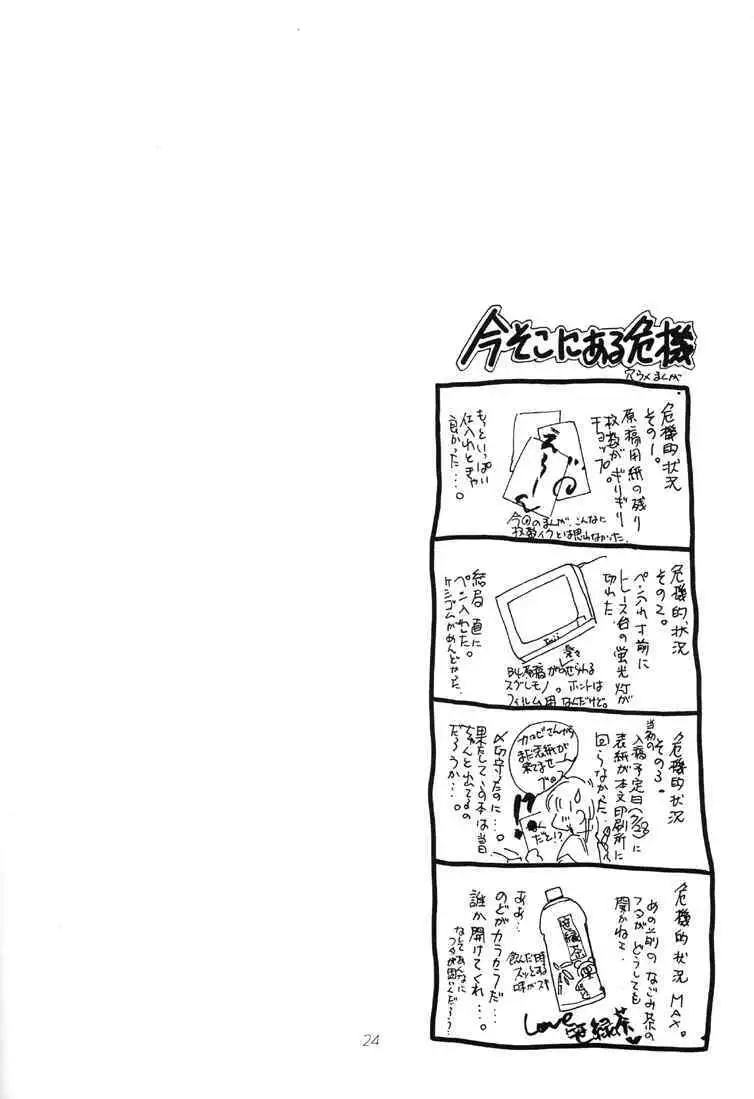 今そこにある危機
穴ウメまんが
危機的状況
その1。
原稿用紙の残り
枚数がギリギリ
チョップ。
えーん
の
今回のまんが、こんなに
枚数イクとは思わなかった。
もっといっぱい
仕入れときゃ
良かった…。
危機的状況
その2。
ペン入れ寸前に
トレース台の蛍光灯が
切れた
B4原稿が楽々のせられる
スグレモノ。ホントは
フィルム用なんだけど。
結局直に
ペン入れした。
ケシゴムがめんどかった
危機的状況
その3。
当初の
入稿予定日(7/28)に
表紙が本文印刷所に
回らなかった。
まだ表紙が
来てませーん
だと!?
〆切守ったのに…。
果たしてこの本は当日
ちゃんと出てるの
だろうか…。
危機的状況MAX。
あの前のなごみ茶の
フタがどうしても
開かねえ
笹緑茶
飲んだ時
スッとする
味がスキ
Love
笹緑茶
ああ…
のどがカラカラだ…
誰か開けてくれ…。
なしてあんなに
フタが固いんだろう?
24